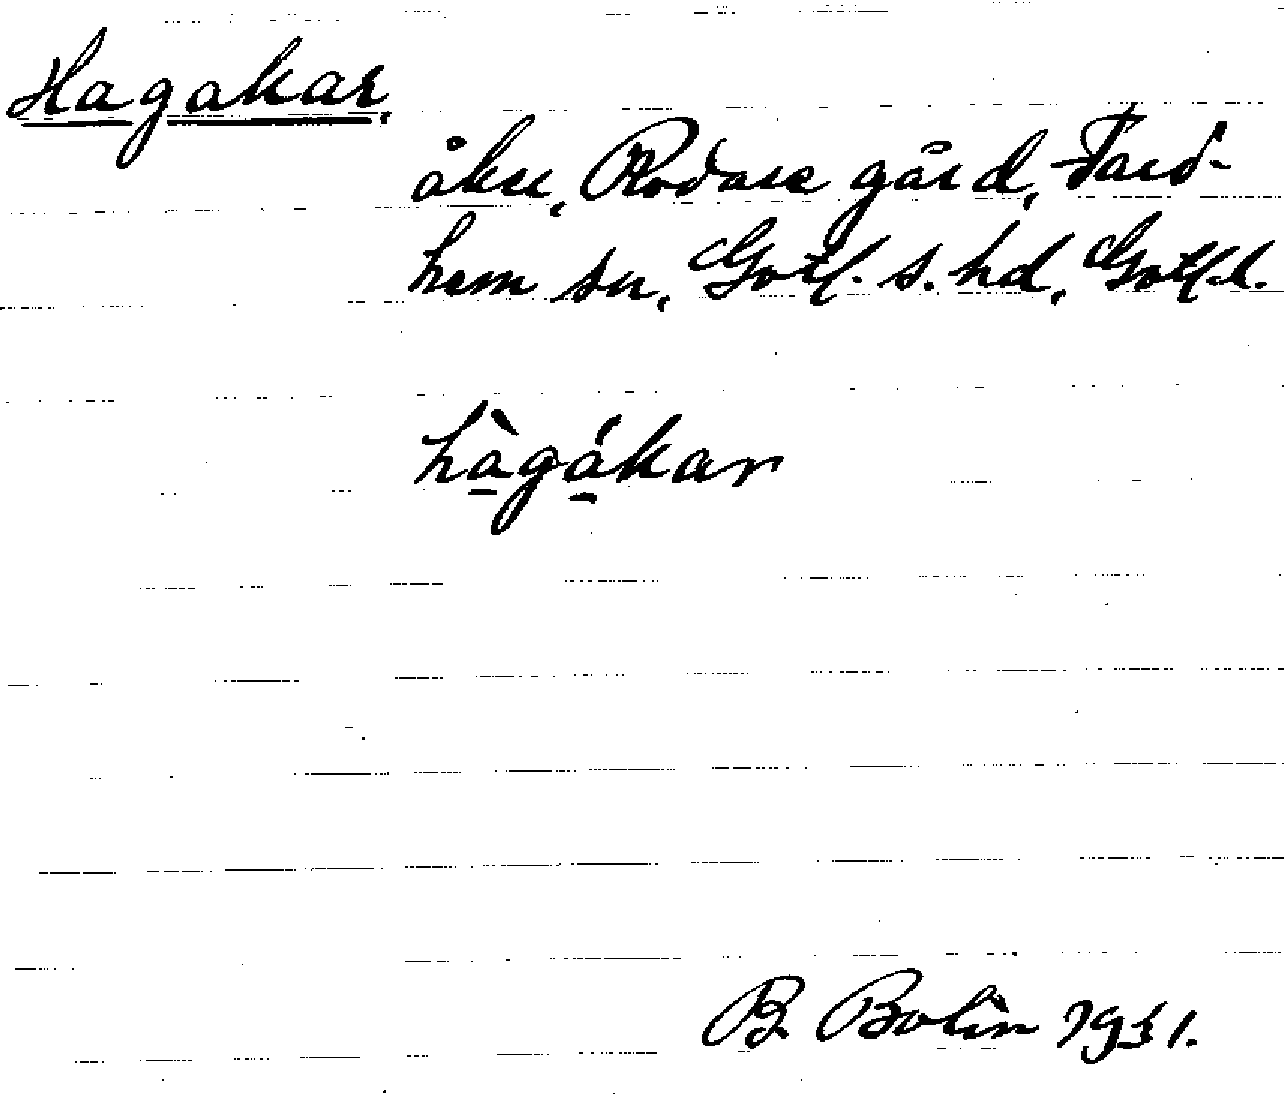 Hagakar,
åker, Rodare gård, Fard-
hem sn, Gotl. s. hd, Gotl.l.
hàgákar
B. Bolin 1931.